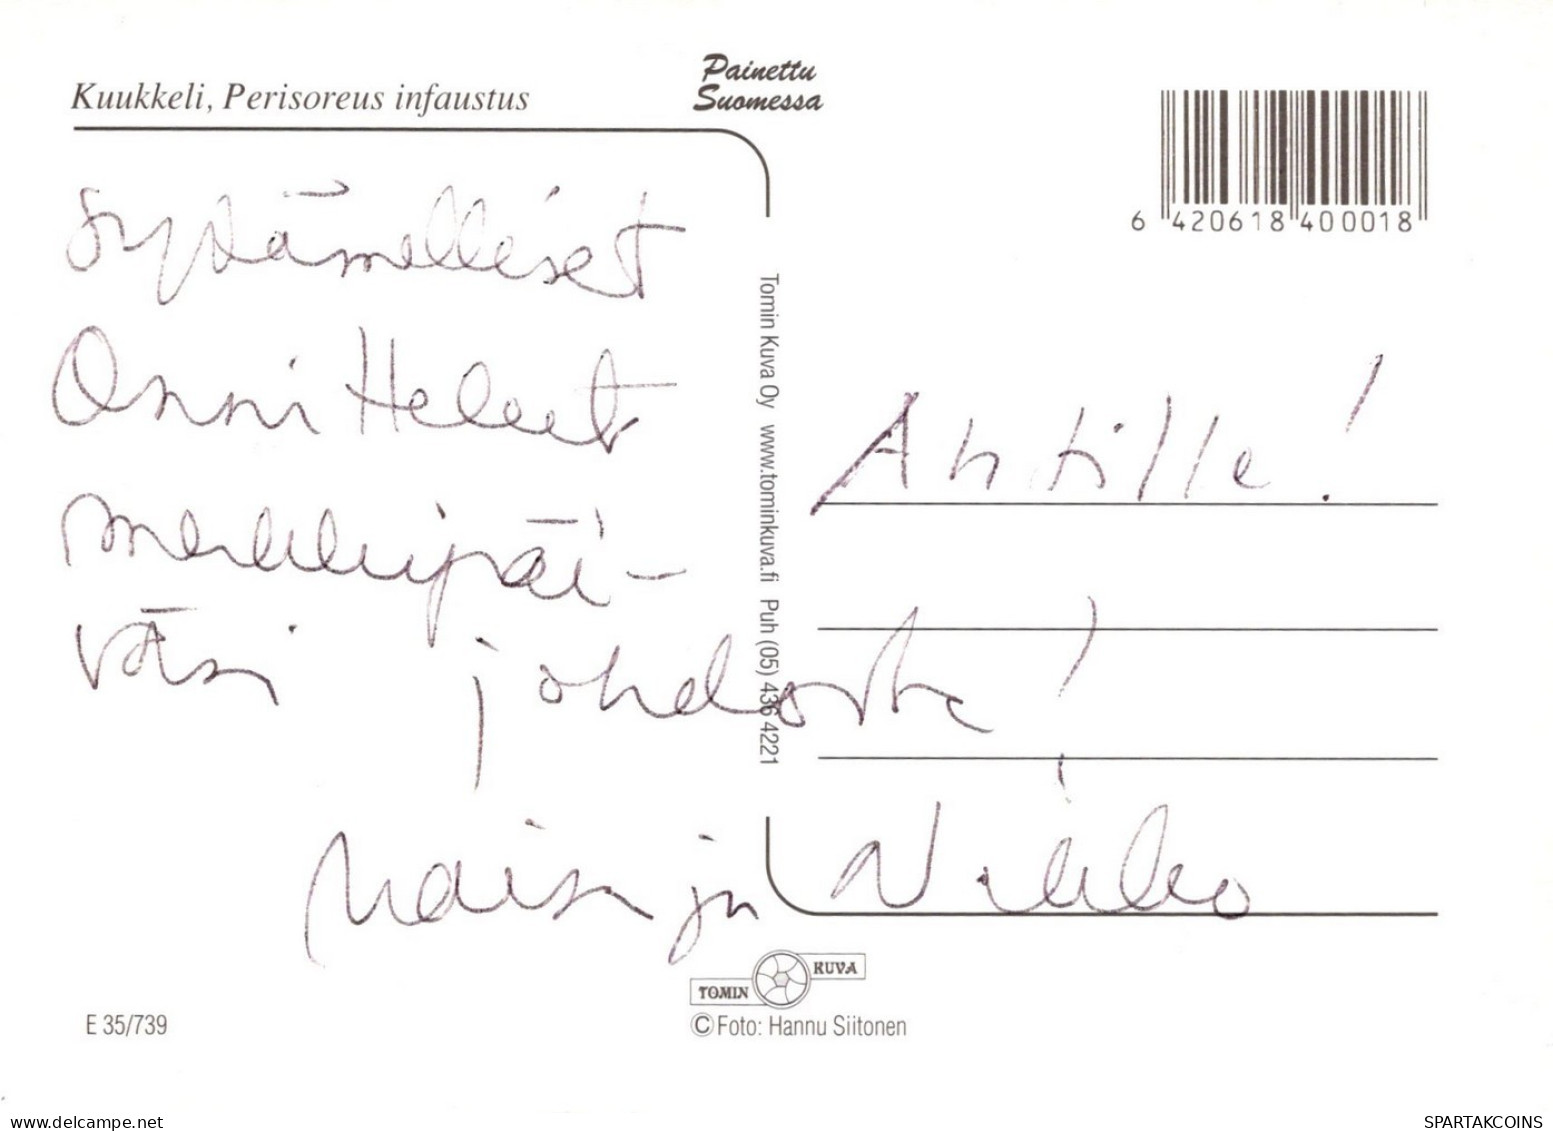 Kuukkeli, Perisoreus infaustus
Painettu
Suomessa
6 420618 400018
Sydämelliset
Onnittelut
merkkipäi-
väsi johdosta!
Maisi ja Nikko
Antille!
Tomin Kuva Oy www.tominkuva.fi Puh (05) 436 4221
TOMIN KUVA
© Foto: Hannu Siitonen
E 35/739
delcampe.net
SPARTAKCOINS